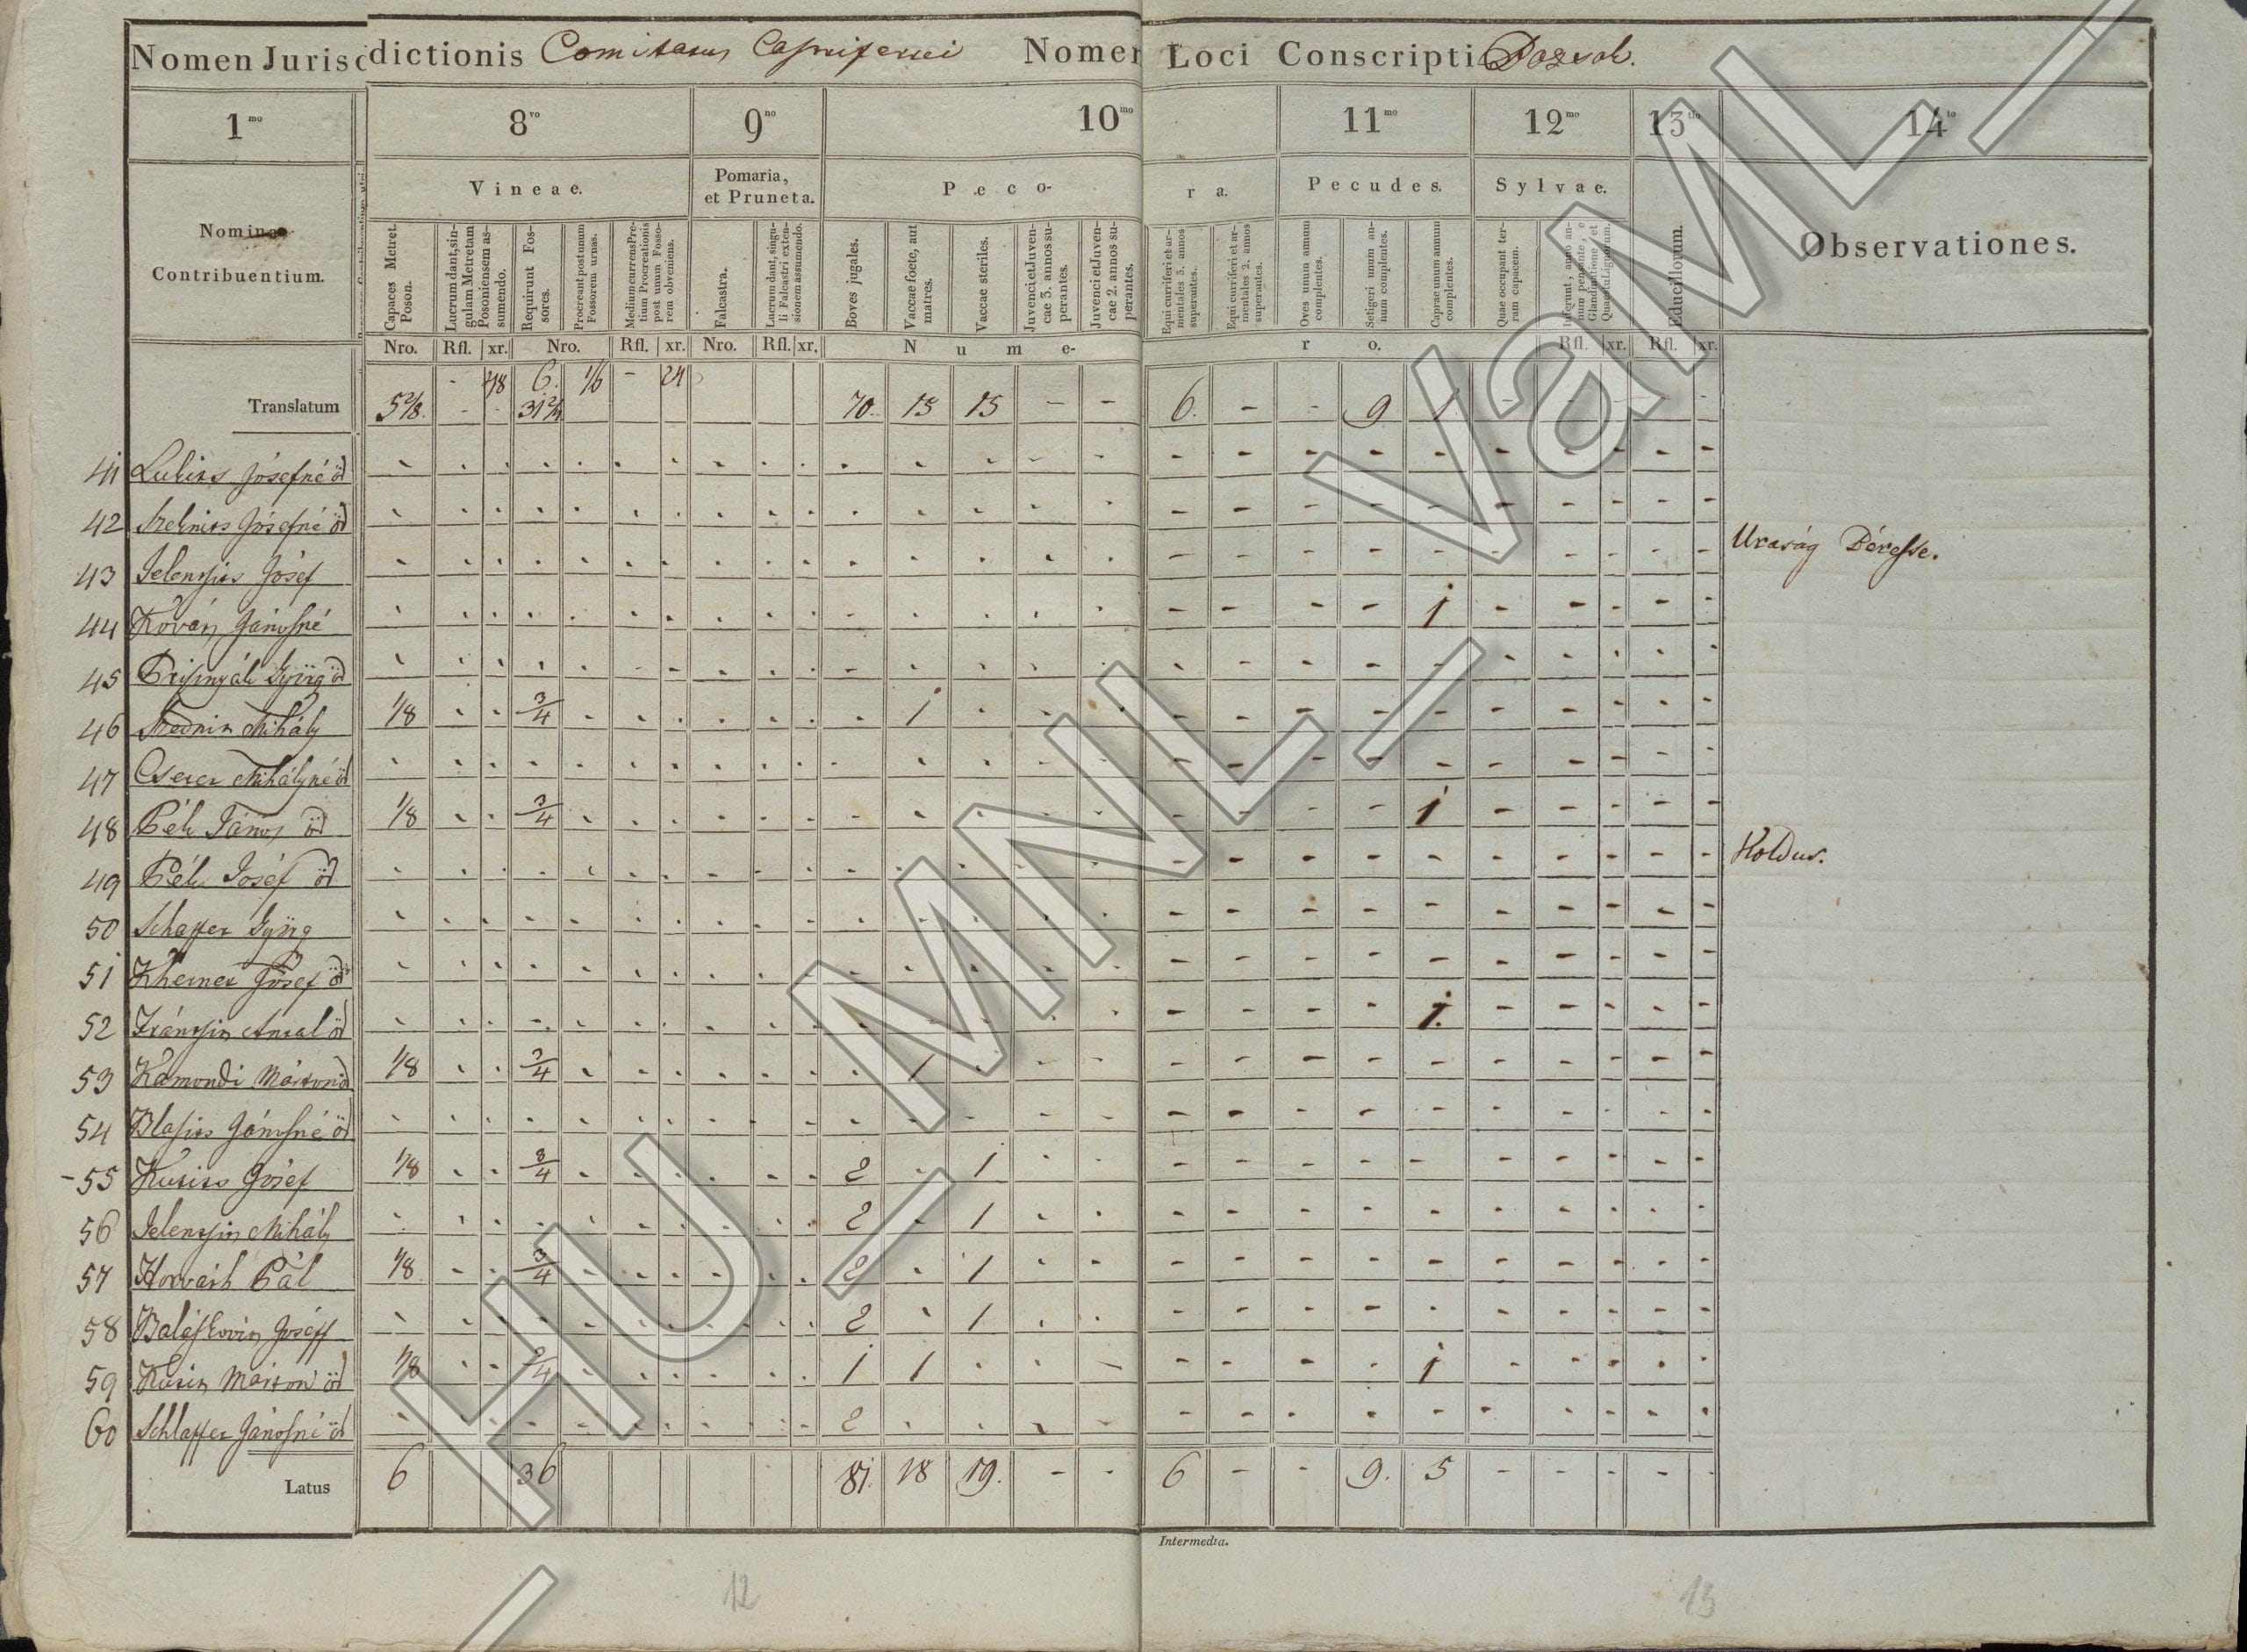 Nomen Jurisdictionis Comitatus Castriferrei Nomen Loci Conscripti Dozsoh.
1mo 8vo 9no 10mo 11mo 12mo 13tio 14to
Nomina Contribuentium.
Vineae.
Pomaria, et Pruneta.
Pecora.
Pecudes.
Sylvae.
Educillorum.
Observationes.
Capaces Metret. Poson.
Lucrum dant, singulam Metretam Posoniensem assumendo.
Requirunt Fossores.
Procreant post unum Fossorem urnas.
Medium currens Pretium Procreationis post unum Fossorem obveniens.
Falcastra.
Lucrum dant, singuli Falcastri extensionem assumendo.
Boves jugales.
Vaccae foete, aut matres.
Vaccae steriles.
Juvenci et Juvencae 3. annos superantes.
Juvenci et Juvencae 2. annos superantes.
Equi curriferi et armentales 3. annos superantes.
Equi curriferi et armentales 2. annos superantes.
Oves unum annum complentes.
Setigeri unum annum complentes.
Caprae unum annum complentes.
Quae occupant terram capacem.
Inferunt, anno annum pensante, e Glandinatione et Quaestu Lignorum.
Nro. Rfl. xr. Nro. Rfl. xr. Nro. Rfl. xr. Nume- ro. Rfl. xr. Rfl. xr.
- 48 6. 1/6 - 24
Translatum 5 2/8. - - 31 2/4 70. 15 15 - - 6. - - 9 1 - - - - -
41 Józsefné öd
42 Józsefné öd
43 József Uraság Béresse.
44 Jánosné 1
45 öd
46 Mihály 1/8 3/4 1
47 Cserer Mihályné öd
48 Péh János öd 1/8 3/4 1
49 Péh József öd Koldus.
50 Schaffer Györg
51 Kherner József öd
52 Antal öd 1.
53 Kamondi Márton öd 1/8 3/4 1
54 Jánosné öd
55 József 1/8 3/4 2 1
56 Mihály 2 1
57 Horváth Pál 1/8 3/4 2 1
58 Joseff 2 1
59 Márton öd 1/8 3/4 1 1 1
60 Schlaffer Jánosné öd 2
Latus 6 36 81. 18 19. - - 6 - - 9. 5 - - - - -
Intermedia.
12
13
HU_MNL_VaML_